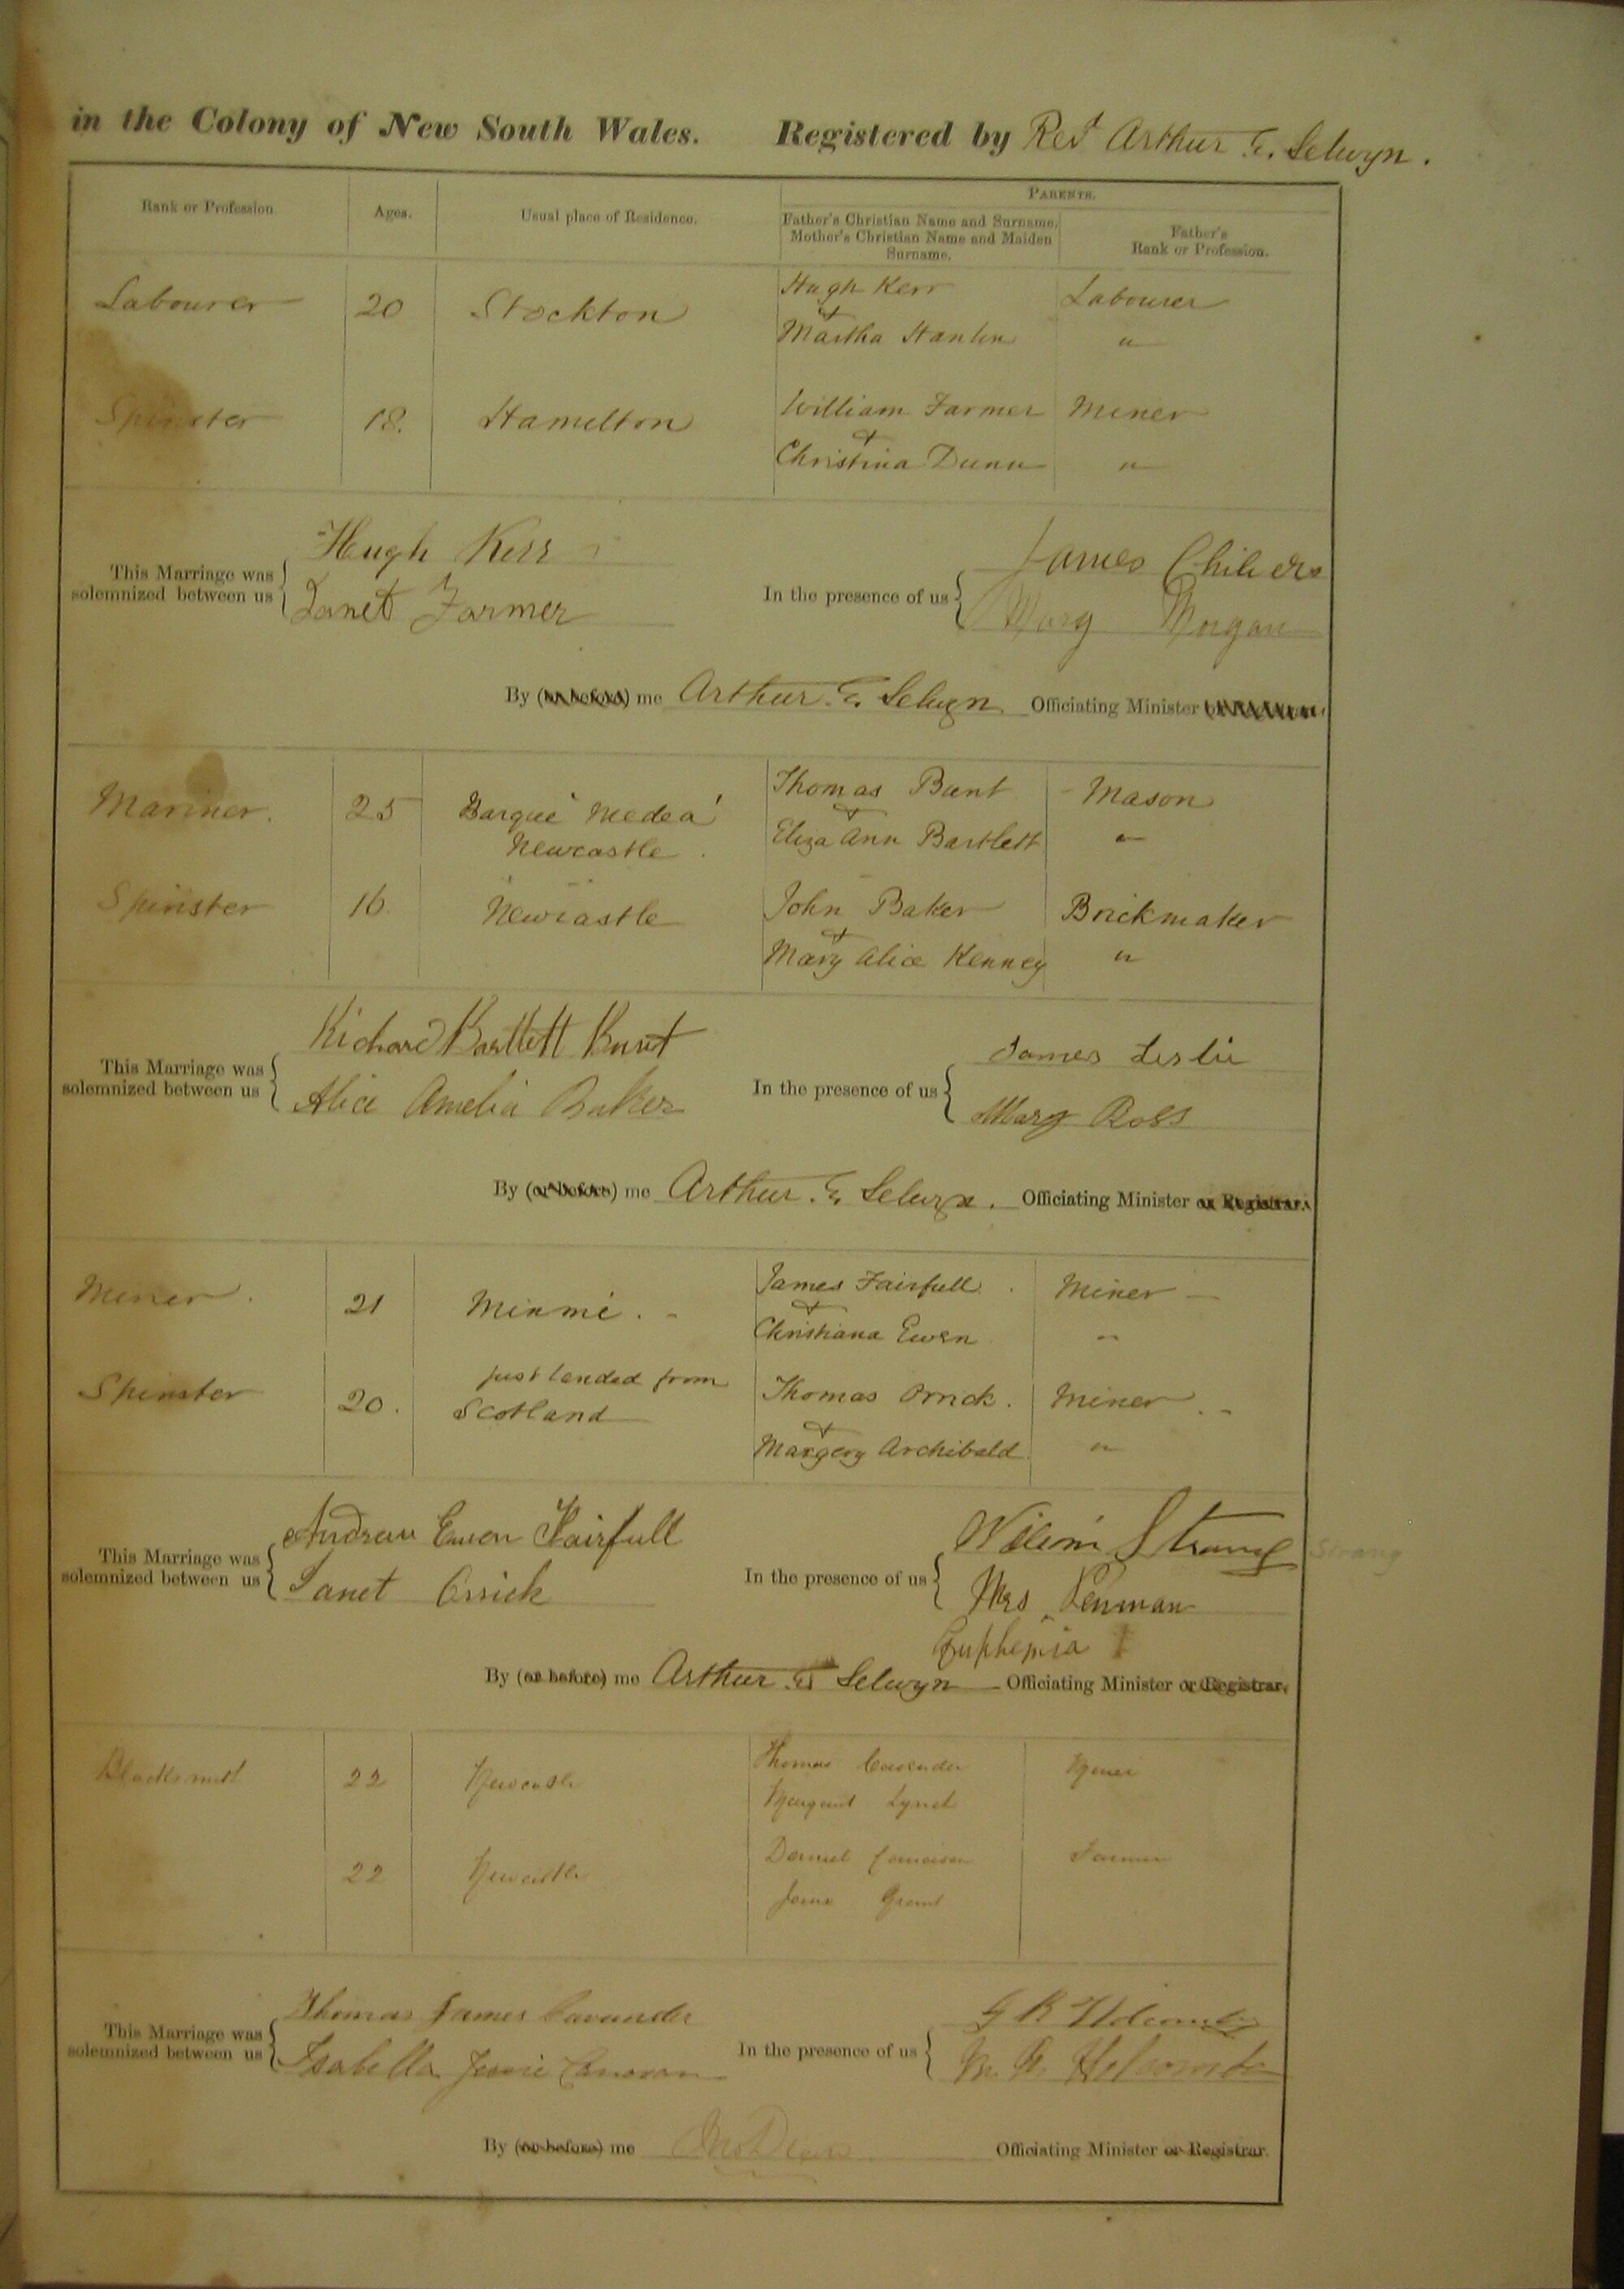 in the Colony of New South Wales. Registered by Revd Arthur E. Selwyn.
PARENTS.
Rank or Profession Ages. Usual place of Residence. Father's Christian Name and Surname, Mother's Christian Name and Maiden Surname. Father's Rank or Profession.
Labourer 20 Stockton Hugh Kerr Labourer
& Martha "
Spinster 18. Hamelton William Farmer Miner
& Christina Dunn "
Hugh Kerr James
This Marriage was solemnized between us In the presence of us
Janet Farmer Mary Morgan
By (or before) me Arthur E. Selwyn Officiating Minister
Mariner. 25 Barque 'Medea' Thomas Bunt Mason
Newcastle. & Eliza Ann Bartlett "
Spinster 16 Newcastle John Baker Brickmaker
& Mary Alice Kenney "
Richard Bartlett Bunt James Leslie
This Marriage was solemnized between us In the presence of us
Alice Amelia Baker Mary Ross
By (or before) me Arthur E. Selwyn. Officiating Minister or Registrar.
Miner. 21 Minmi. James Fairfull Miner
& Christiana Ewen "
Spinster 20. just landed from Thomas Orrick. Miner
Scotland & Margery Archibald "
Andrew Ewen Fairfull Strang Strang
This Marriage was solemnized between us In the presence of us
Janet Orrick Mrs Penman
Euphemia
By (or before) me Arthur E Selwyn Officiating Minister or Registrar.
Blacksmith 22 Newcastle Thomas Cavender Miner
Margaret Lynch
22 Newcastle Daniel Farmer
Grant
Thomas James Cavender G R
This Marriage was solemnized between us In the presence of us
Isabella Jessie M. A. Holcombe
By (or before) me Officiating Minister or Registrar.